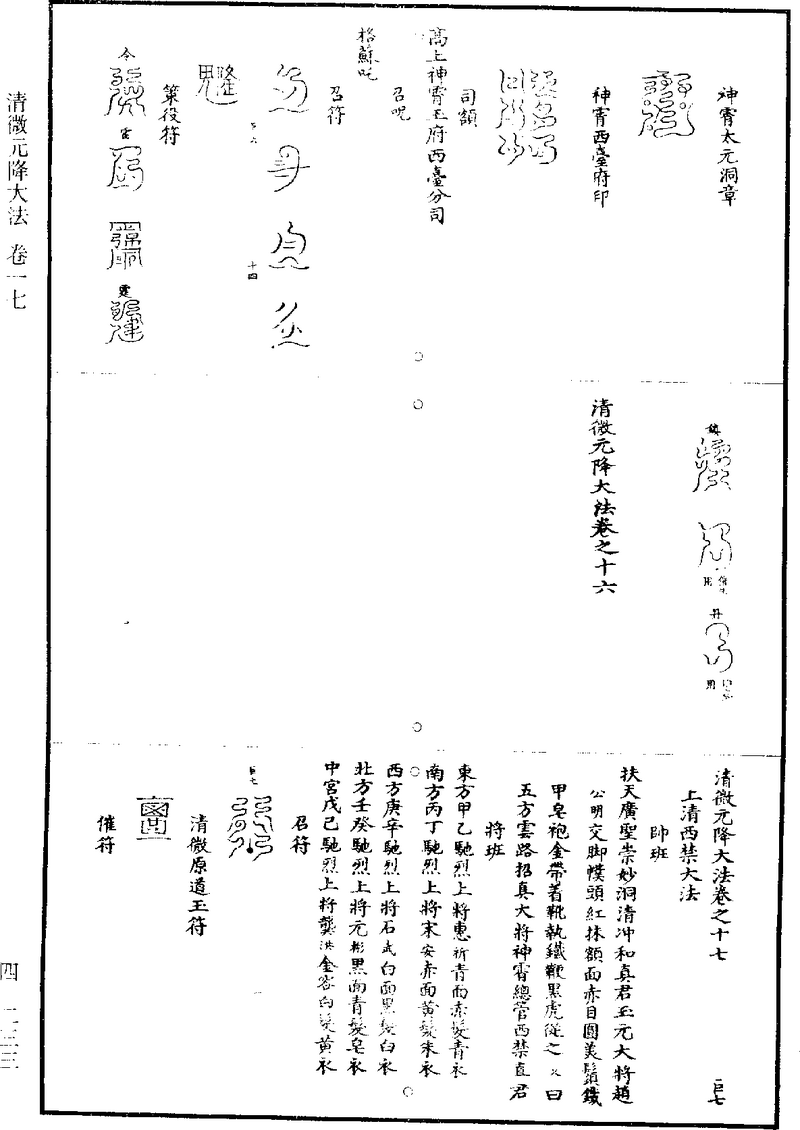 神霄太元洞章
神霄西臺府印
司額
高上神霄玉府西臺分司
召呪
格蘇吒
召符
十四
策役符
令
雷
霆
清微元降大法卷之十六
清微元降大法卷之十七
巨七
上清西禁大法
帥班
扶天廣聖崇妙洞清冲和真君玉元大將趙
公明交脚幞頭紅抹額面赤目圓美鬚鐵
甲皂袍金帶著靴執鐵鞭黑虎從之又曰
五方雲路招真大將神霄總管西禁直君
將班
東方甲乙馳烈上將惠祈青面赤髮青衣
南方丙丁馳烈上將宋安赤面黃髮朱衣
西方庚辛馳烈上將石武白面黑髮白衣
北方壬癸馳烈上將元彬黑面青髮皂衣
中宮戊己馳烈上將龔洪金容白髮黃衣
召符
清微原道玉符
催符
清微元降大法 卷一七
四 二三三